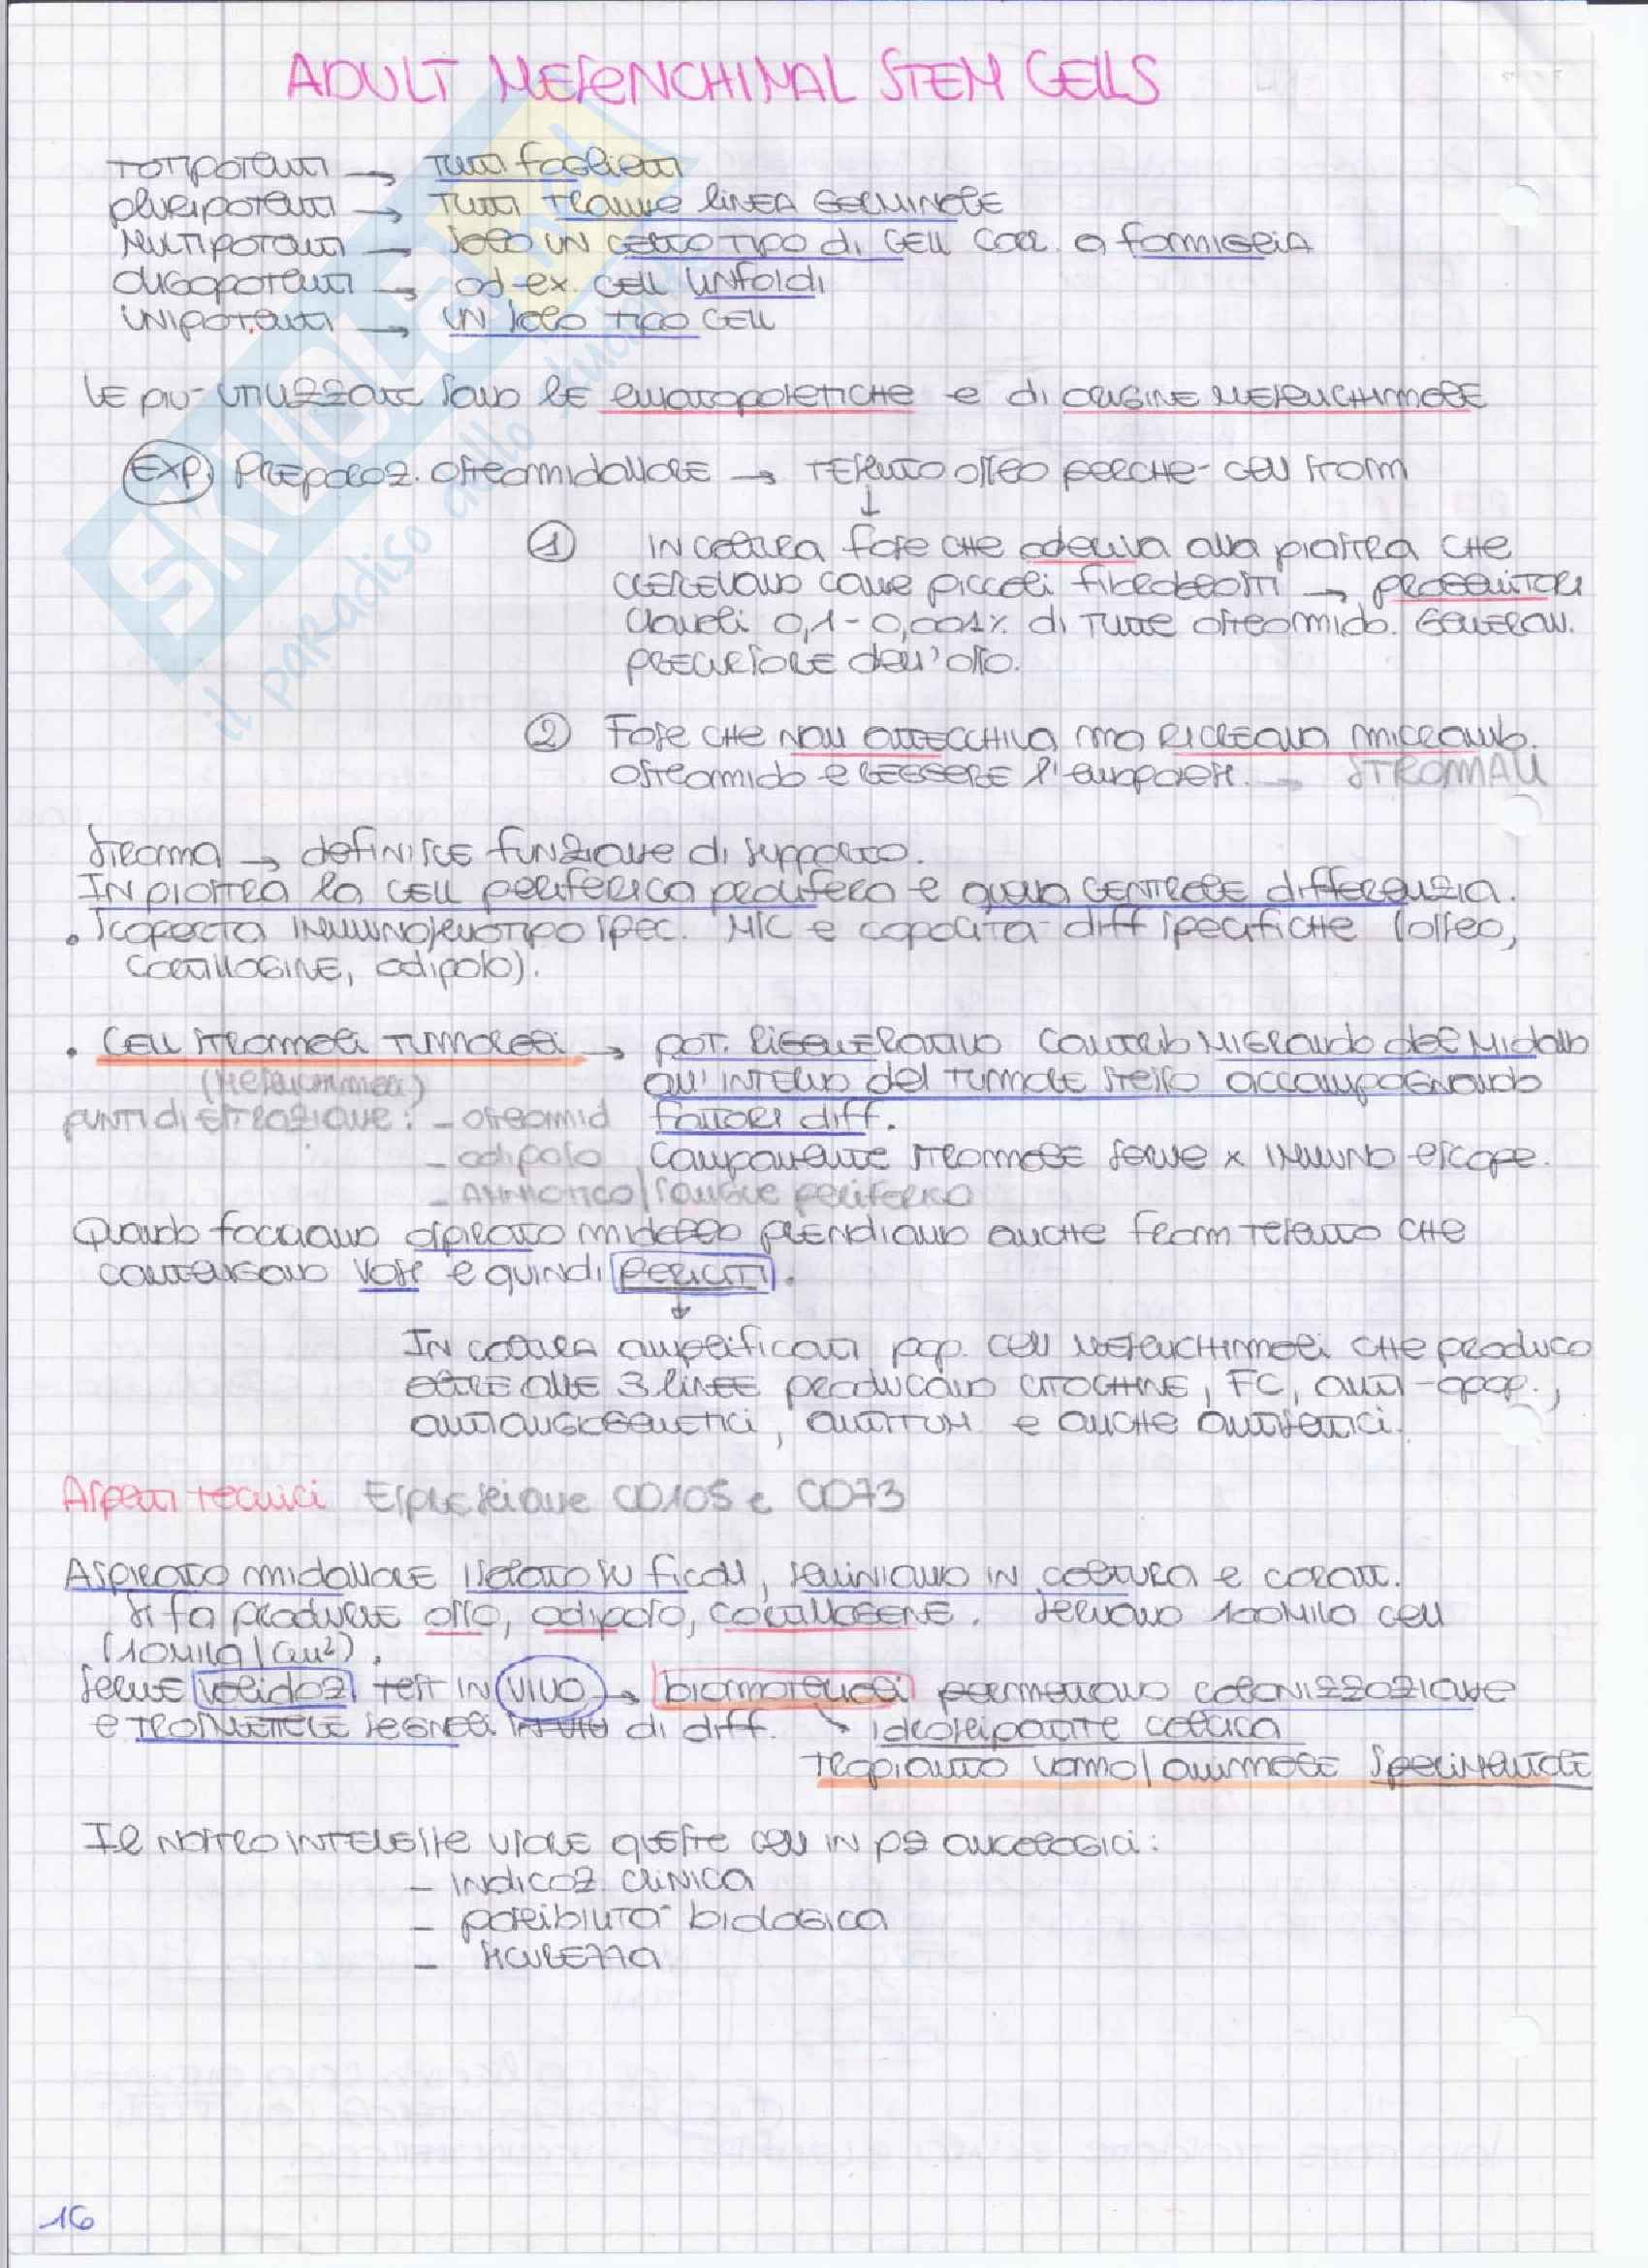 ADULT MESENCHIMAL STEM CELLS
TOTIPOTENTI → TUTTI foglietti
pluripotenti → TUTTI TRANNE LINEA GERMINALE
MULTIPOTENTI → SOLO UN CERTO TIPO di CELL CORR. a famiglia
OLIGOPOTENTI → ad ex. CELL LINfoidi
UNIPOTENTI → UN SOLO TIPO CELL
LE PIU' UTILIZZATE SONO LE EMATOPOIETICHE e di ORIGINE MESENCHIMALE
EXP. PREPARAZ. OSTEOMIDOLLARE → TESSUTO OSSEO PERCHE' CELL STROM
↓
① IN COLTURA fase CHE aderiva alla piastra CHE
CRESCEVANO COME piccoli fibroblasti → PROGENITORI
clonali 0,1-0,001% di TUTTE osteomido. GENERAN.
PRECURSORE dell'OSSO.
② FASE CHE NON ATTECCHIVA ma RICREAVA MICROAMB.
osteomido e REGGERE l'emopoiesi. → STROMALI
STROMA → definisce funzione di supporto.
IN PIASTRA la CELL periferica prolifera e quella CENTRALE differenzia.
• Scoperta IMMUNOFENOTIPO spec. MSC e capacità diff specifiche (osseo,
CARTILLAGINE, adiposo).
• CELL STROMALI TUMORALI → POT. RIGENERATIVO CONTRIB MIGRANDO dal MIDOLLO
(MESENCHIMALI) all'INTERNO del TUMORE STESSO ACCOMPAGNANDO
PUNTI di ESTRAZIONE: - osteomid fattori diff.
- adiposo Componente STROMALE serve x IMMUNO escape.
- AMNIOTICO/SANGUE periferico
Quando facciamo aspirato midollo PRENDIAMO anche fram TESSUTO CHE
CONTENGONO VASI e quindi PERICITI.
↓
IN COLTURA amplificati pop. cell MESENCHIMALI CHE produco
OLTRE alle 3 LINEE producono CITOCHINE, FC, anti-apop.,
ANTIANGIOGENETICI, ANTITUM e anche antisettici.
Aspetti tecnici Espressione CD105 e CD73
ASPIRATO midollare isolato su ficoll, seminiamo IN coltura e caratt.
Si fa produrre osso, adiposo, CARTILLAGENE. Servono 100MILA cell
(10MILA/cm²).
Serve validaz TEST IN VIVO → biomateriali permettono colonizzazione
e TRASMETTERE SEGNALI di diff. ↘ idrossiapatite calcica
TRAPIANTO UOMO/ANIMALE SPERIMENTALE
IL NOSTRO INTERESSE USARE QUESTE cell in pz oncologici:
- INDICAZ. CLINICA
- possibilità biologica
- SICUREZZA
16
SKUOLA.net
il paradiso dello studente